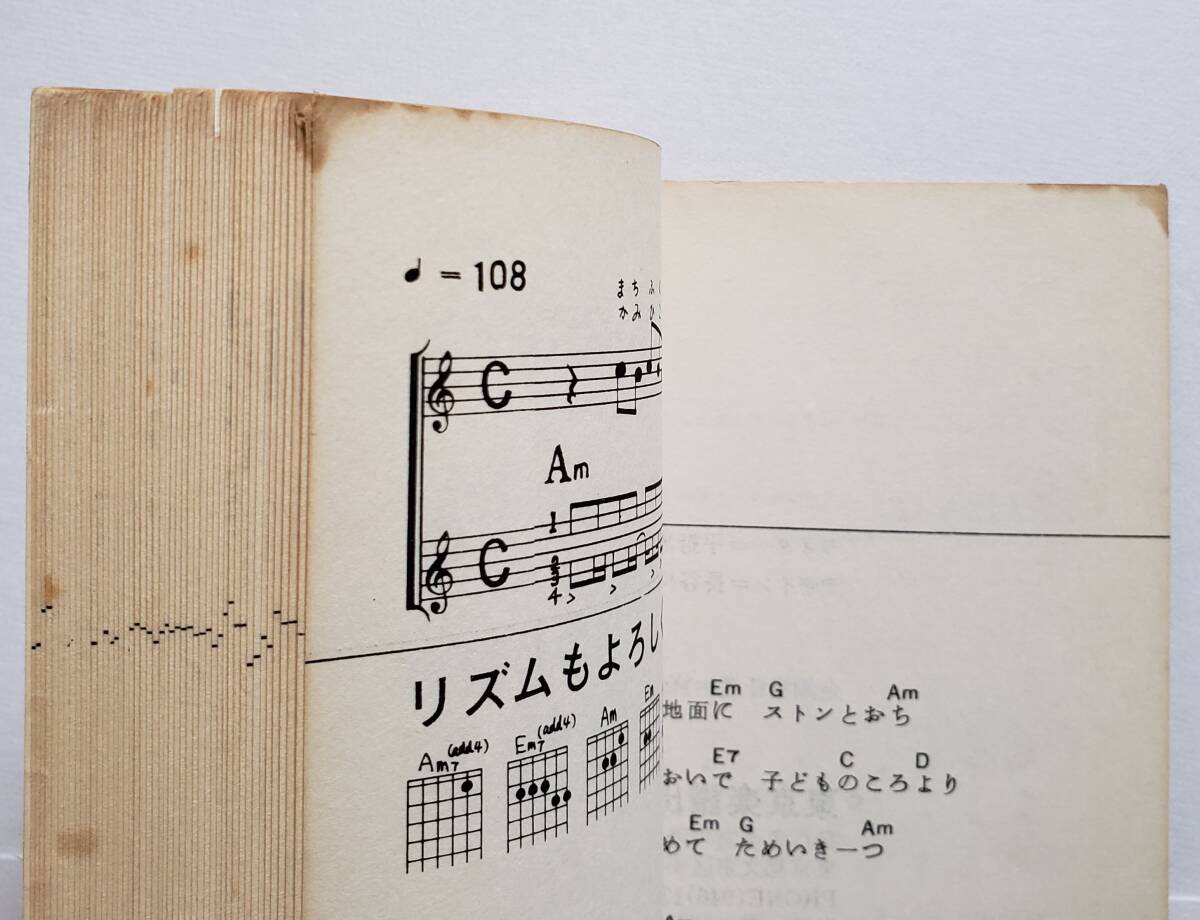 ♩ = 108
まちふ
かみひ
C
Am
1
C
2
3
4
リズムもよろし
Am7(add4) Em7(add4) Am Em
Em G Am
地面に ストンとおち
E7 C D
おいで 子どものころより
Em G Am
めて ためいき一つ